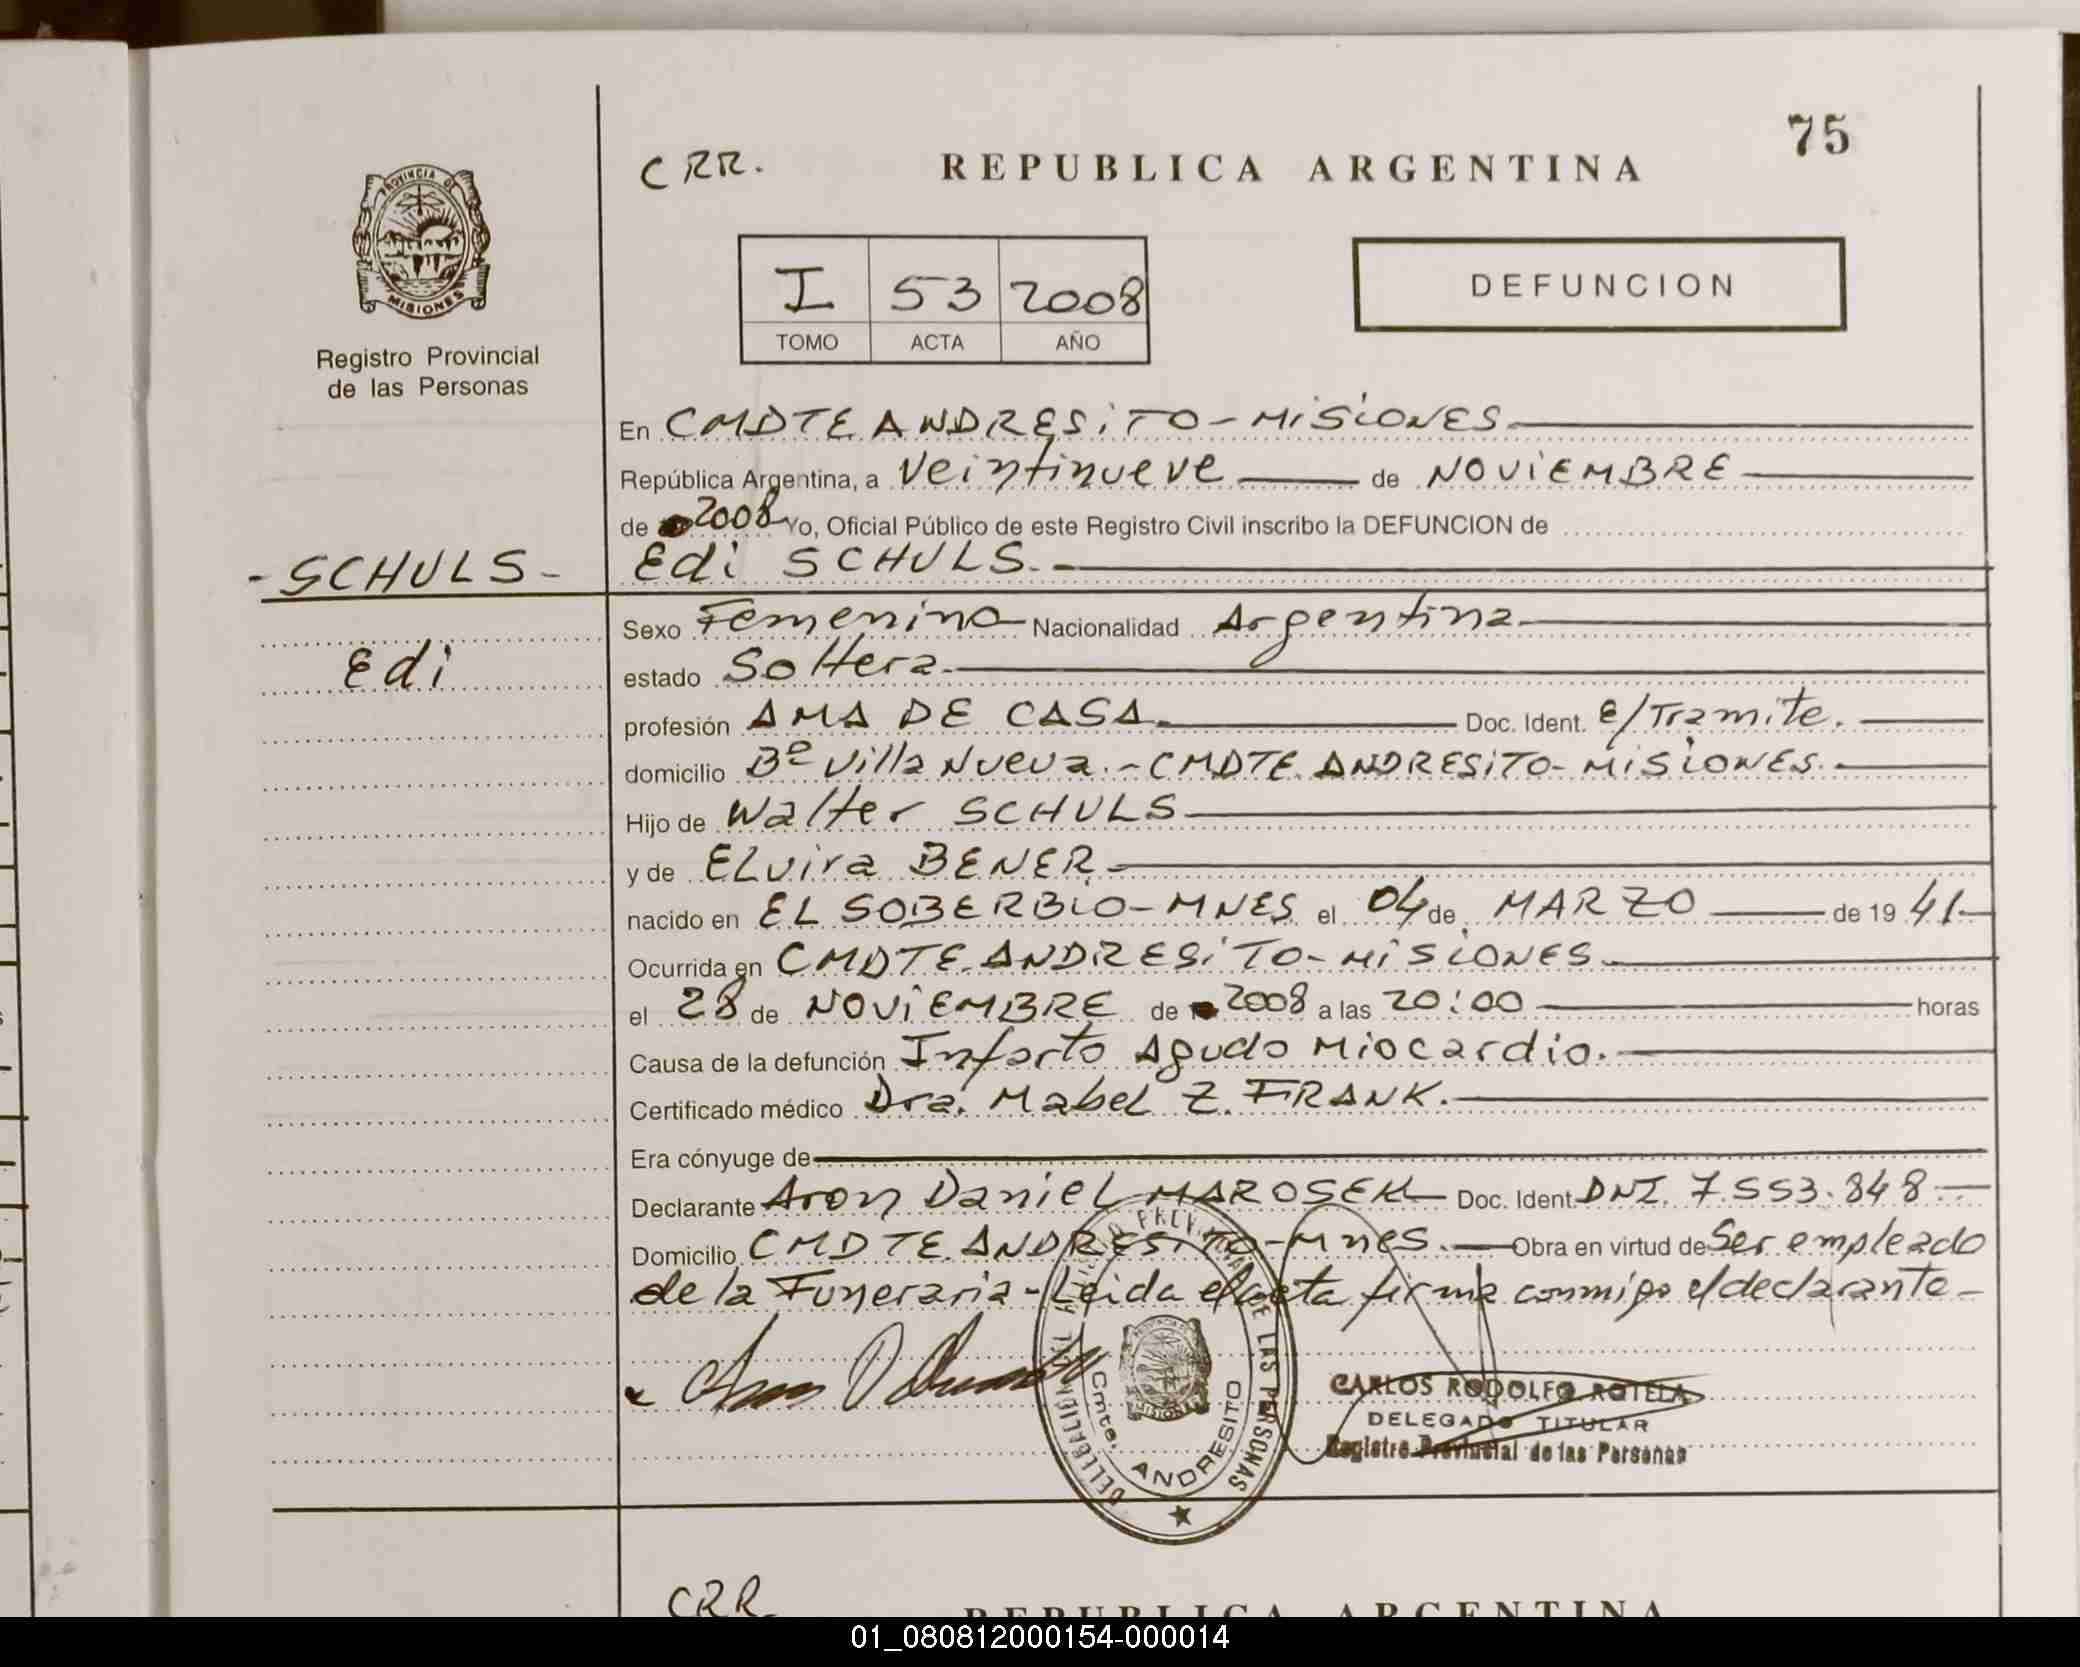 75
CRR.
REPUBLICA ARGENTINA
PROVINCIA DE
MISIONES
Registro Provincial
de las Personas
I 53 2008
TOMO ACTA AÑO
DEFUNCION
En CMDTE ANDRESITO - MISIONES
República Argentina, a Veintinueve de NOVIEMBRE
de 2008 Yo, Oficial Público de este Registro Civil inscribo la DEFUNCION de
- SCHULS - Edi SCHULS.-
Sexo Femenino Nacionalidad Argentina
Edi
estado Soltera.
profesión AMA DE CASA. Doc. Ident. E/Tramite.
domicilio Bº Villa Nueva.- CMDTE ANDRESITO - MISIONES.
Hijo de Walter SCHULS
y de ELvira BENER.
nacido en EL SOBERBIO - MNES el 04 de MARZO de 19 41.
Ocurrida en CMDTE. ANDRESITO - MISIONES.
el 28 de NOVIEMBRE de 2008 a las 20:00 horas
Causa de la defunción Infarto Agudo Miocardio.
Certificado médico Dra. Mabel Z. FRANK.
Era cónyuge de
Declarante Aron Daniel MAROSEK Doc. Ident. DNI. 7.553.848.
Domicilio CMDTE. ANDRESITO - Mnes. Obra en virtud de Ser empleado
de la Funeraria - Leida el acta firma conmigo el declarante -
DE LAS PERSONAS
Cmte. ANDRESITO
CARLOS RODOLFO ROTELA
DELEGADO TITULAR
Registro Provincial de las Personas
CRR.
REPUBLICA ARGENTINA
01_080812000154-000014